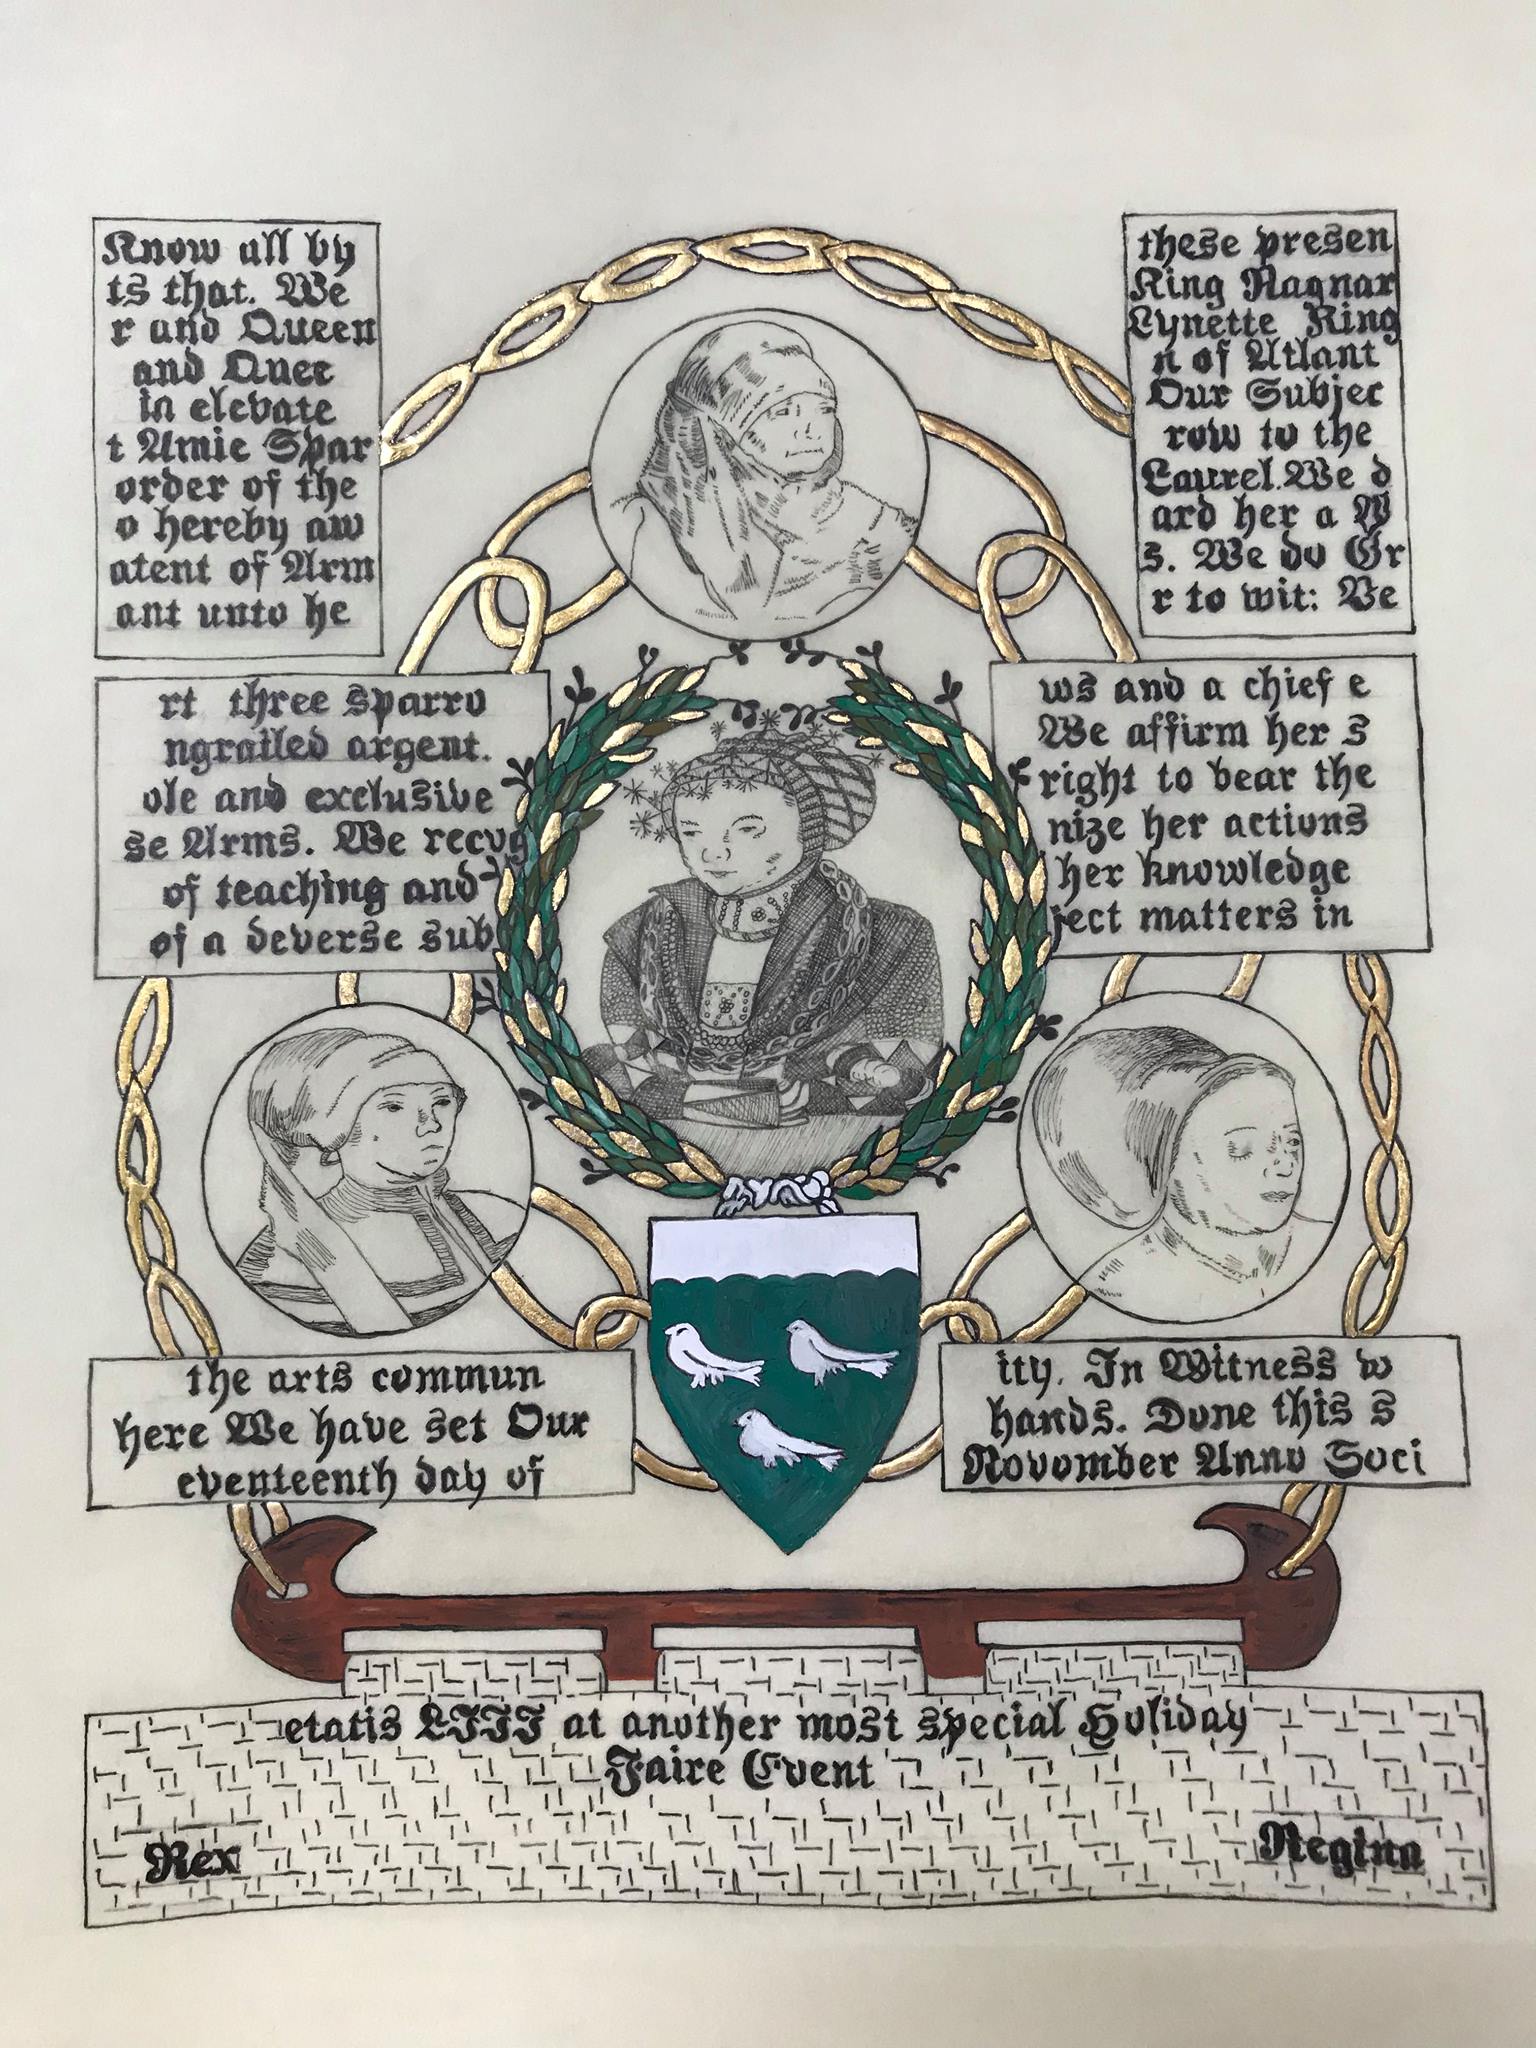 Know all by these presen
ts that. We King Ragnar
r and Queen Lynette King
and Quee n of Atlant
in elevate Our Subjec
t Amie Spar row to the
order of the Laurel. We d
o hereby aw ard her a W
atent of Arm s. We do Gr
ant unto he r to wit: Ve
rt three sparro ws and a chief e
ngrailed argent. We affirm her s
ole and exclusive right to bear the
se Arms. We recog nize her actions
of teaching and her knowledge
of a deverse sub ject matters in
the arts commun ity. In Witness w
here We have set Our hands. Done this s
eventeenth day of Novomber Anno Soci
etatis LIII at another most special Holiday
Faire Event
Rex Regina